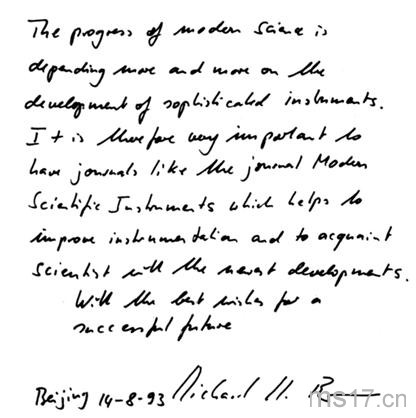 The progress of modern Science is
depending more and more on the
development of sophisticated instruments.
It is therefore very important to
have journals like the journal Modern
Scientific Instruments which helps to
improve instrumentation and to acquaint
Scientist with the newest developments.
With the best wishes for a
successful future
Beijing 14-8-93 Michael H.
ms17.cn